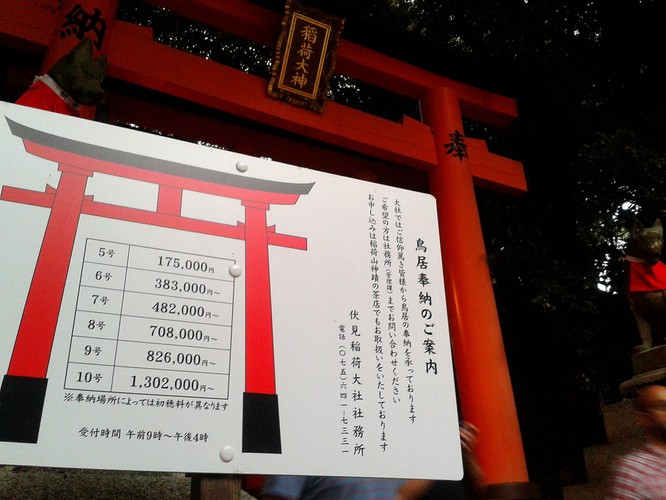 納
稲荷大神
奉
鳥居奉納のご案内
大社ではご信仰篤き皆様から鳥居の奉納を承っております
ご希望の方は社務所(管理課)までお問い合わせください
お申し込みは稲荷山神蹟の茶店でもお取扱いをいたしております
伏見稲荷大社社務所
電話(〇七五)六四一-七三三一
5号 175,000円
6号 383,000円~
7号 482,000円~
8号 708,000円~
9号 826,000円~
10号 1,302,000円~
※奉納場所によっては初穂料が異なります
受付時間 午前9時~午後4時